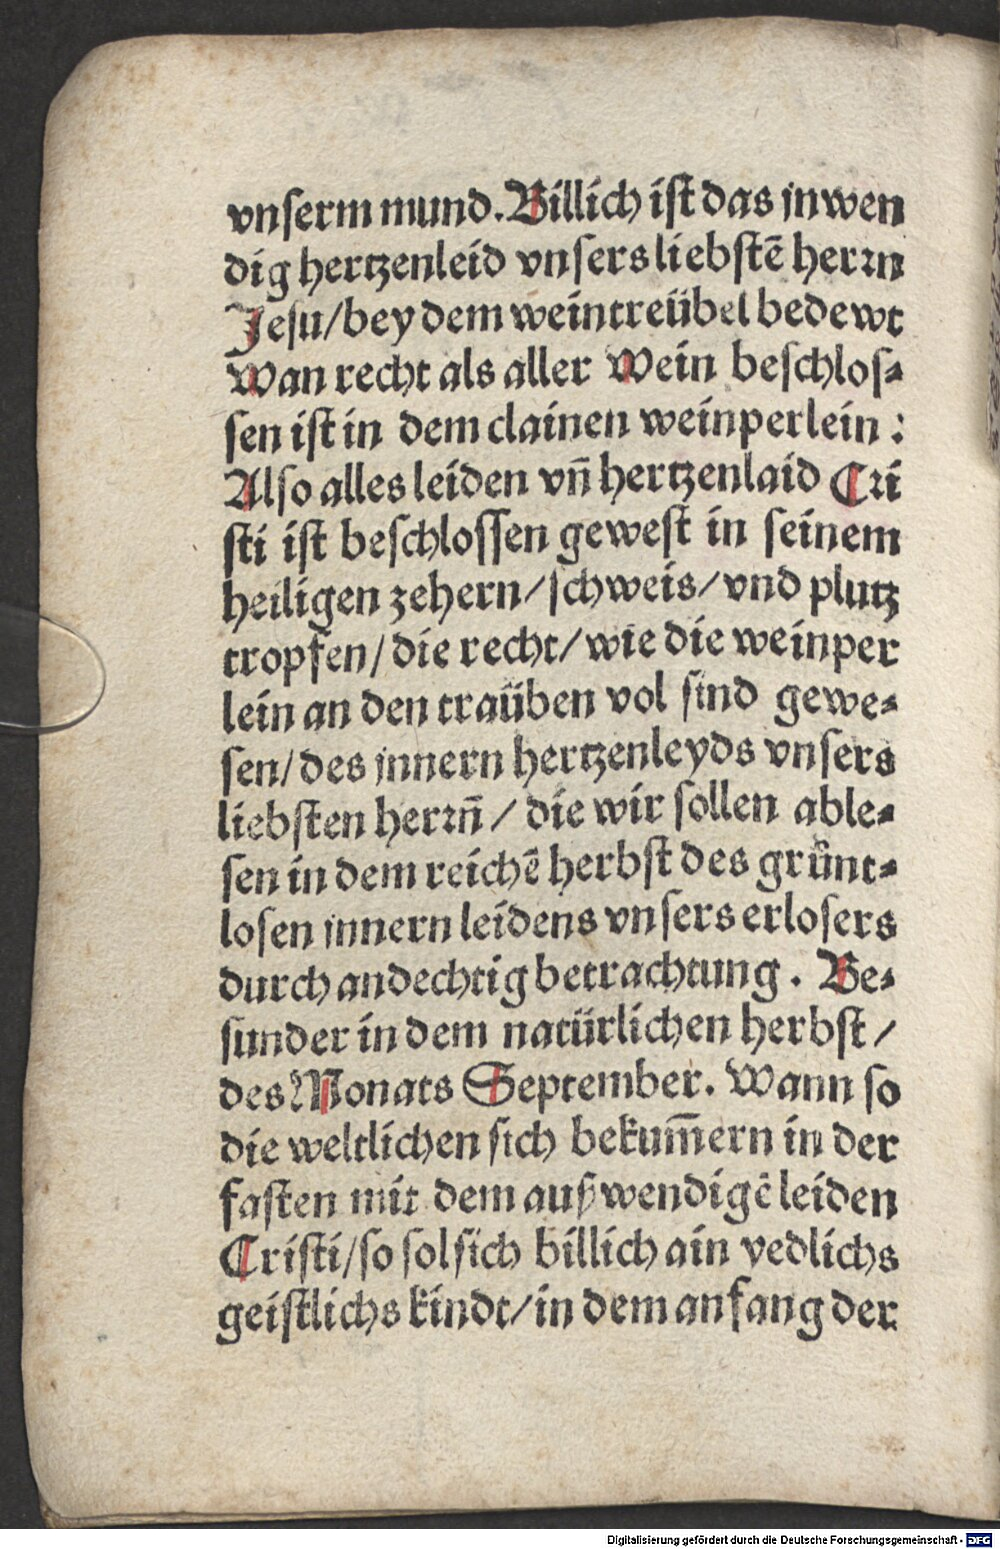 vnserm mund. Billich ist das jnwen
dig hertzenleid vnsers liebstē herꝛn
Jesu/bey dem weintreübel bedewt
Wan recht als aller Wein beschlos⸗
sen ist in dem clainen weinperlein :
Also alles leiden vn̄ hertzenlaid Cꝛi
sti ist beschlossen gewest in seinem
heiligen zehern/schweis/vnd plutz
tropfen/die recht/wie die weinper
lein an den traüben vol sind gewe⸗
sen/des jnnern hertzenleyds vnsers
liebsten herꝛn̄/ die wir sollen able⸗
sen in dem reichē herbst des grünt⸗
losen jnnern leidens vnsers erlosers
durch andechtig betrachtung. Be⸗
sunder in dem natürlichen herbst/
des Monats September. Wann so
die weltlichen sich bekum̄ern in der
fasten mit dem außwendigē leiden
Cristi/so sol sich billich ain yedlichs
geistlichs kindt/in dem anfang der
Digitalisierung gefördert durch die Deutsche Forschungsgemeinschaft - DFG